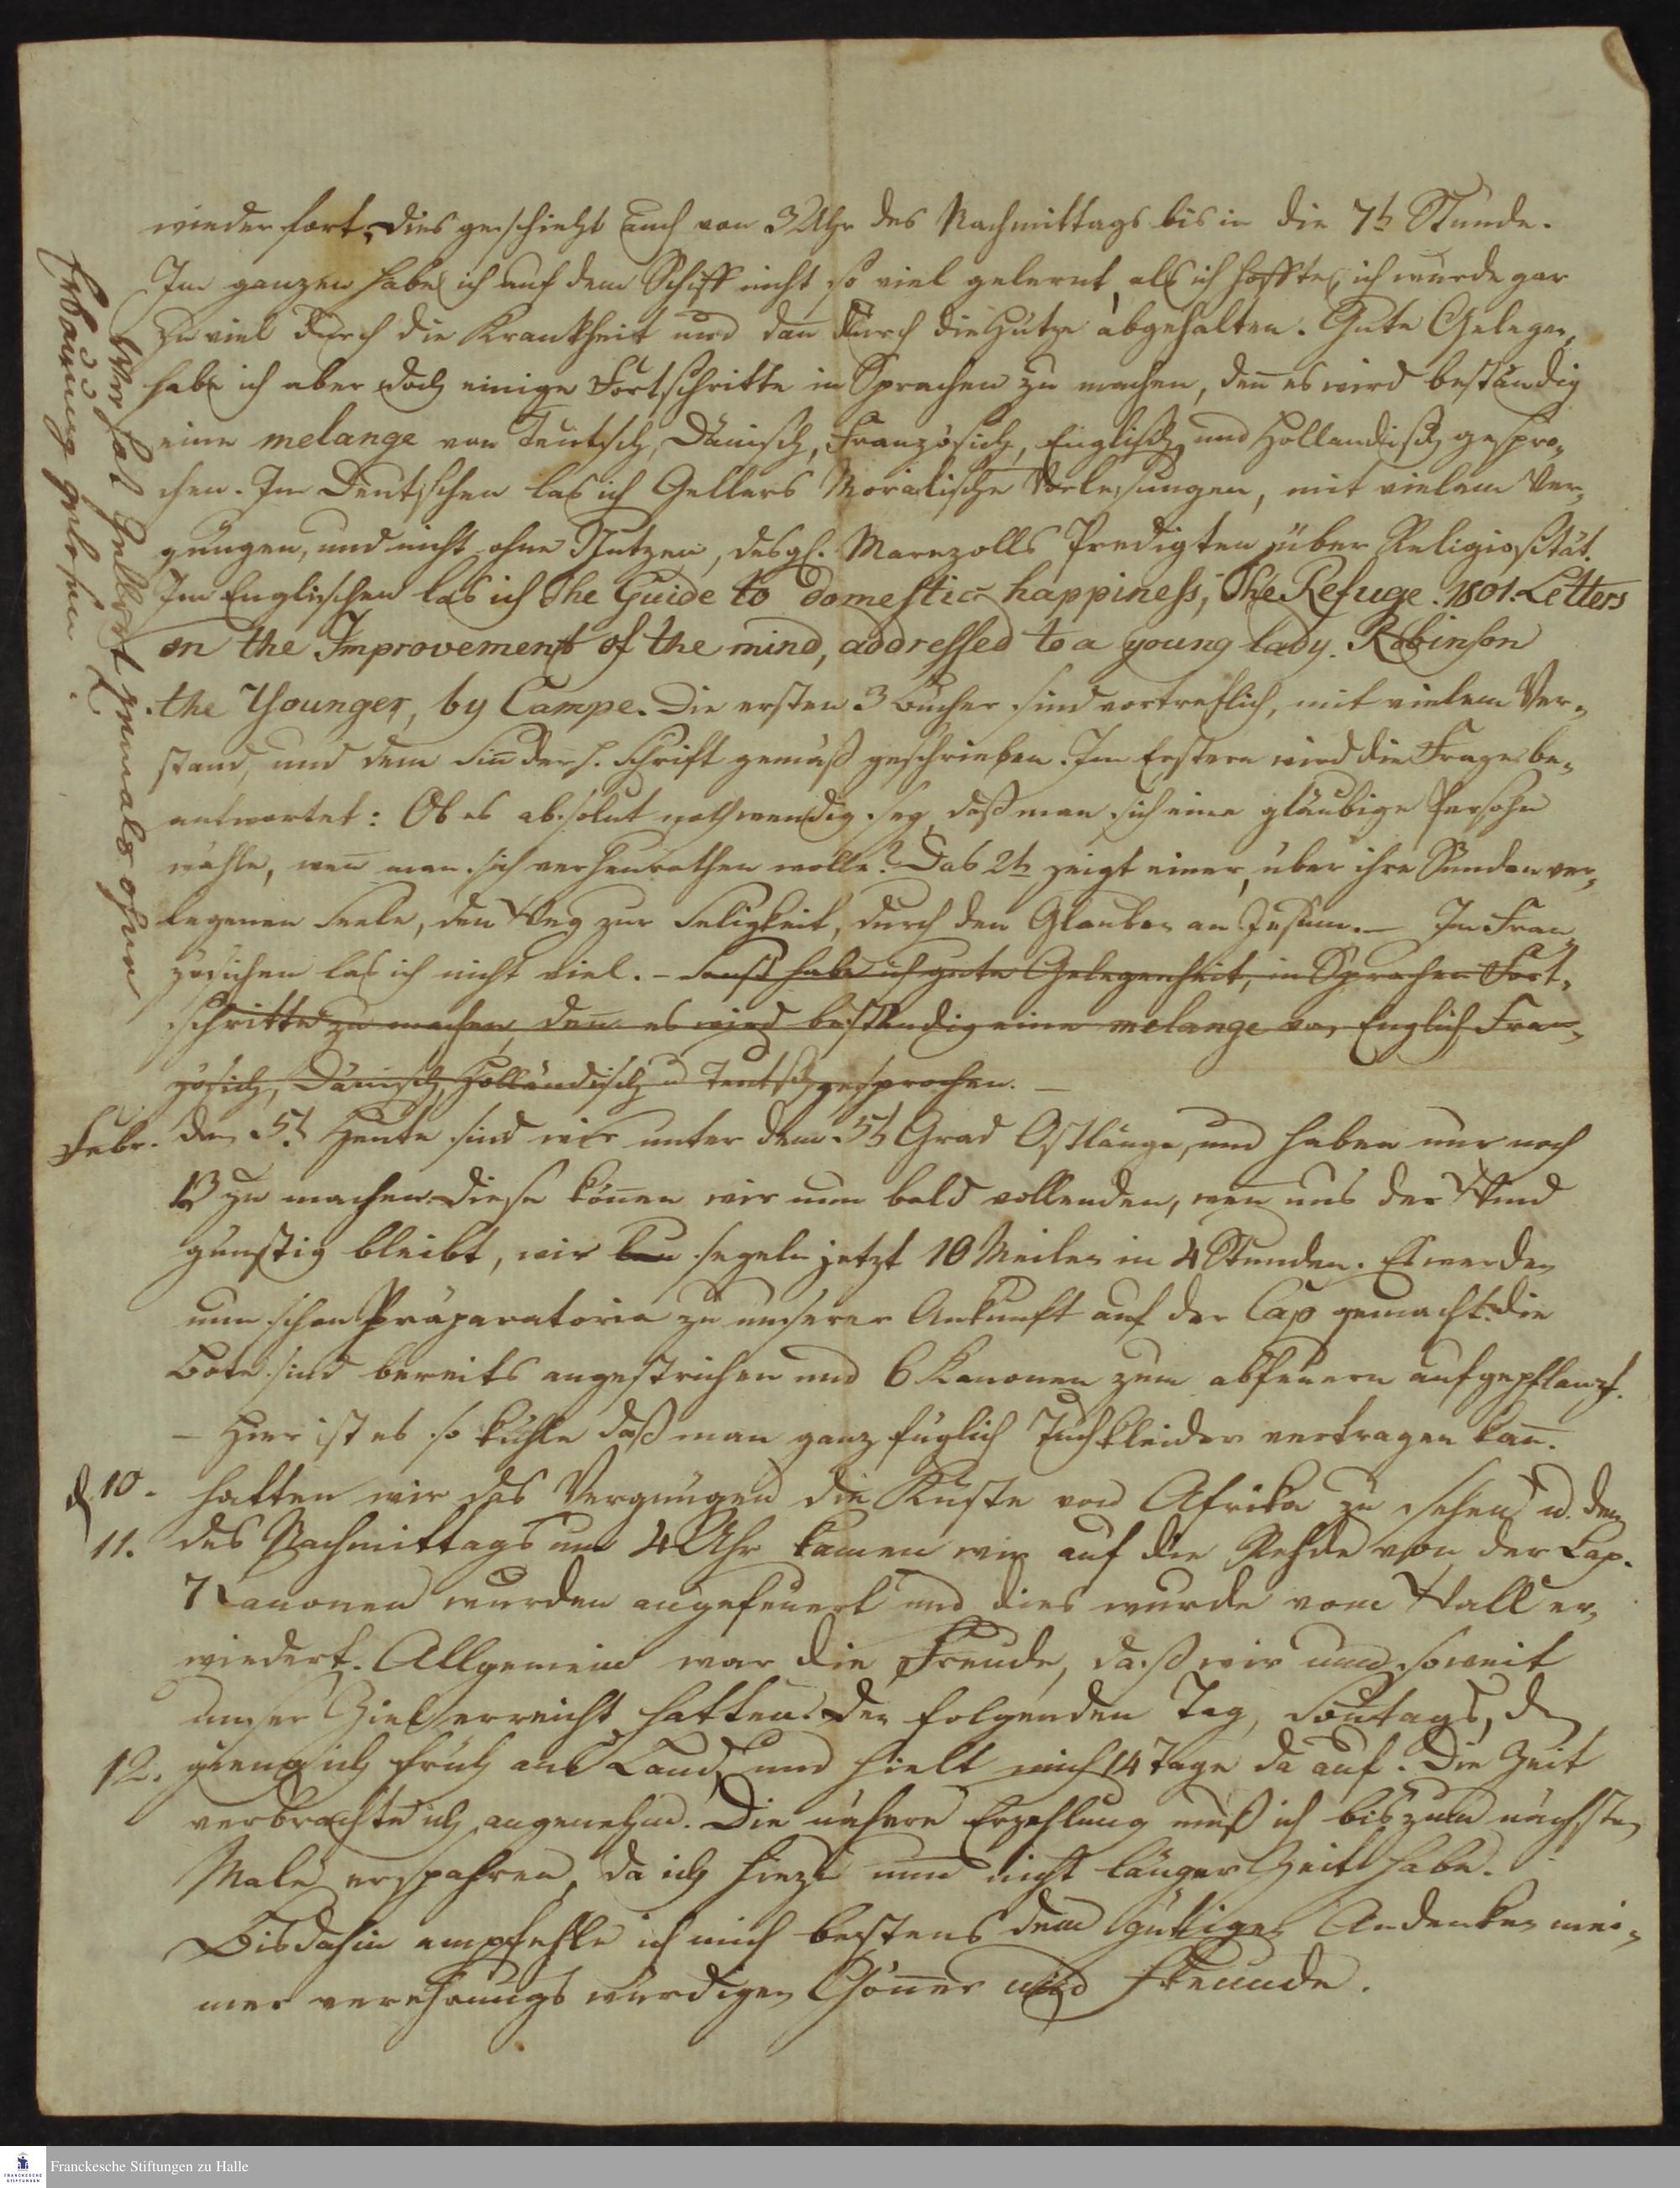 wieder fort, dies geschieht auch von 3 Uhr des Nachmittags bis in die 7te Stunde.
Im ganzen habe ich auf dem Schiff nicht so viel gelernt, als ich hoffte, ich wurde gar
zu viel durch die Krankheit und dan̅ durch die Hütze abgehalten. Gute Gelegen,
habe ich aber doch einige Fortschritte in Sprachen zu machen, den̅ es wird beständig
eine melange von Teutsch, Dänisch, Französich, Englisch und Hollandisch gespro-
chen. Im Deutschen las ich Gellers Moralische Vorlesungen, mit vielem Ver-
gnügen, und nicht ohne Nutzen, desgl. Marezolls Predigten über Religiosität.
Im Englischen las ich The Guide to domestic happiness, The Refuge. 1801. Letters
on the Improvement of the mind, addressed to a young lady. Robinson
the Younger, by Campe. Die ersten 3 Bücher sind vortreflich, mit vielem Ver-
stand, und dem Sin̅ der h. Schrift gemäß geschrieben. Im Erstern wird die Frage be-
antwortet: Ob es absolut nothwendig sey, daß man sich eine gläubige Persohn
wähle, wen̅ man sich verheurathen wolle? Das 2te zeigt einer, über ihre Sünden ver-
legenen Seele, den Weg zur Seligkeit, durch den Glauben an Jesum. — Im Fran-
zösichen las ich nicht viel. – Sonst habe ich gute Gelegenheit, in Sprachen Fort-
schritte zu machen, den̅ es wird beständig eine melange von Englich, Fran-
zösich, Dänisch, Holländisch u Teutsch gesprochen. —
Febr. den 5t. Heute sind wir unter dem 5t Grad Ostlänge, und haben nur noch
13 zu machen. Diese kön̅en wir nun bald vollenden, wen̅ uns der Wind
günstig bleibt, wir segeln jetzt 10 Meilen in 4 Stunden. Es werden
nun schon Präparatoria zu unserer Ankunft auf der Cap gemacht. die
Bote sind bereits angestrichen und 6 Kanonen zum abfeuern aufgepflanzt.
— Hier ist es so kühle daß man ganz füglich Tuchkleider vertragen kan̅.
d 10. hatten wir das Vergnügen die Küste von Afrika zu sehen u. den
11. des Nachmittags um 4 Uhr kamen wir auf die Rehde von der Cap.
7 Kanonen wurden angefeuert und dies wurde vom Wall er-
wiedert. Allgemein war die Freude, daß wir nun soweit
unser Ziel erreicht hatten. Den folgenden Tag, Sontags, d
12. gieng ich früh ans Land, und hielt mich 14 Tage da auf. Die Zeit
verbrachte ich angenehm. Die nähere Erzehlung muß ich bis zum nächsten
Male verspahren, da ich hiezu nun nicht länger Zeit habe.
Bis dahin empfehle ich mich bestens dem gütigen Andenken mei-
ner verehrungswürdigen Gön̅er und Freunde.
Wer hat Gellert jemals ohne
Erbauung gelesen?